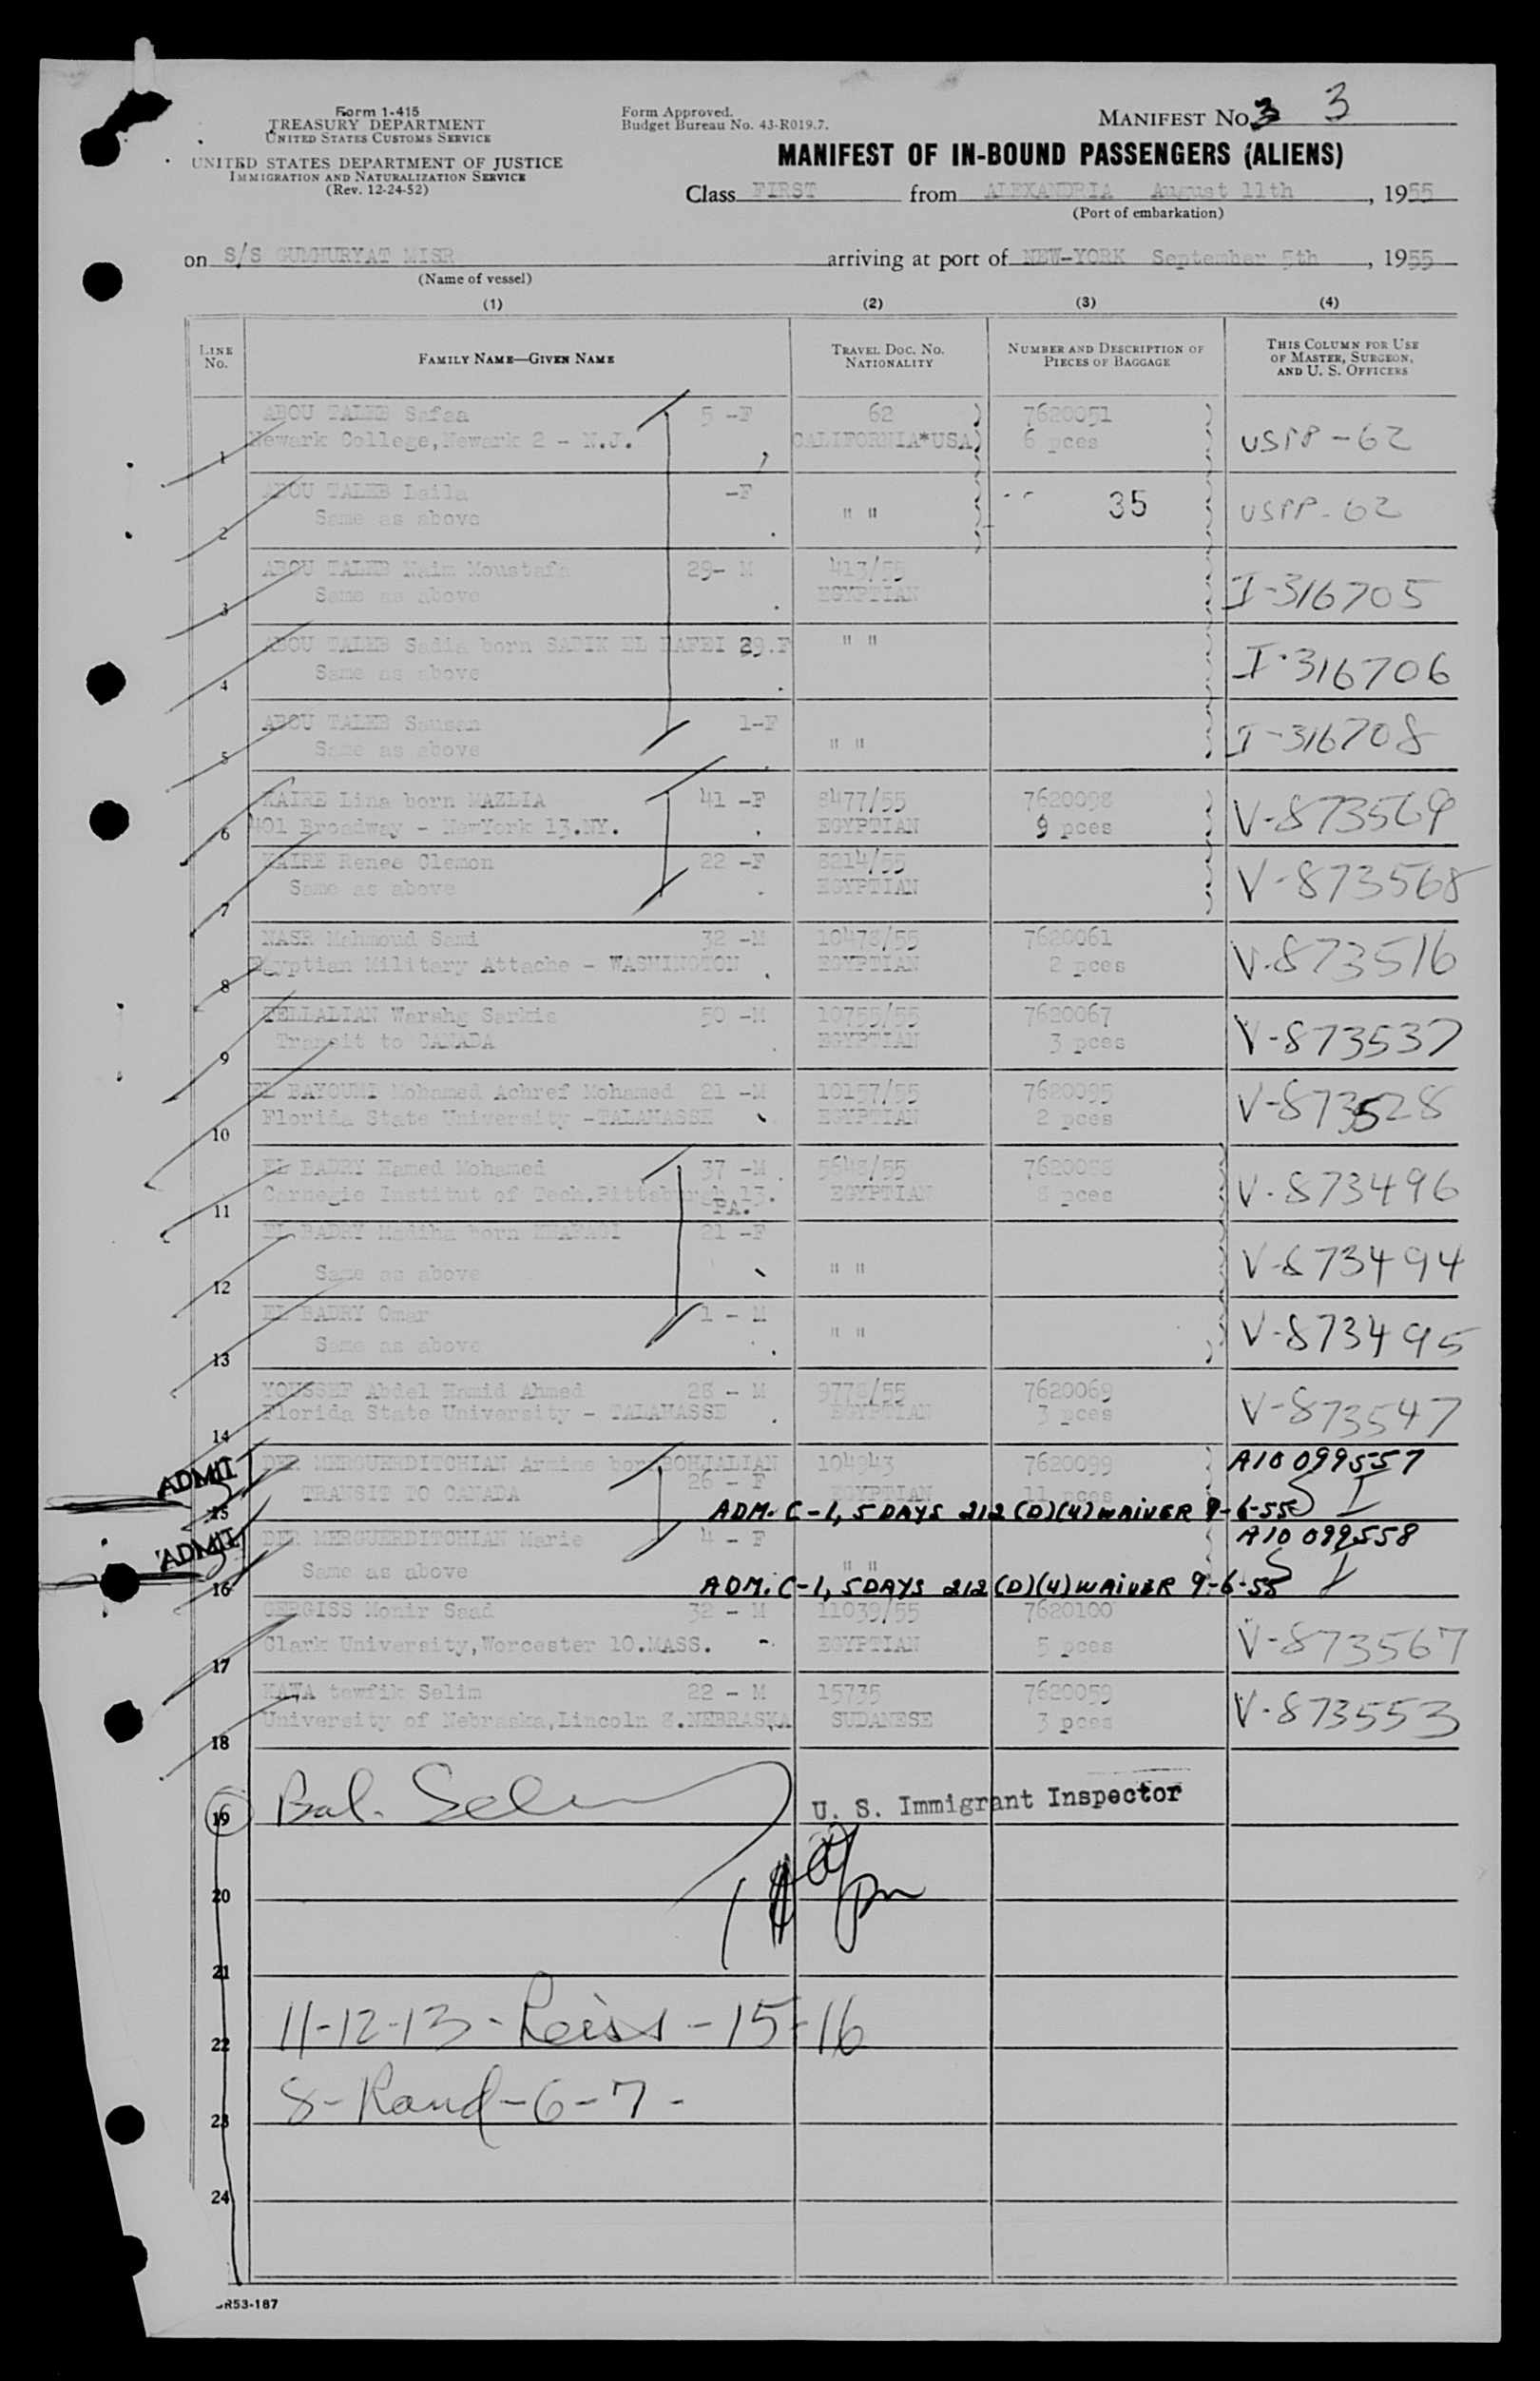 Form 1-415
TREASURY DEPARTMENT
UNITED STATES CUSTOMS SERVICE
UNITED STATES DEPARTMENT OF JUSTICE
IMMIGRATION AND NATURALIZATION SERVICE
(Rev. 12-24-52)
Form Approved.
Budget Bureau No. 43-R019.7.
MANIFEST No. 3 3
MANIFEST OF IN-BOUND PASSENGERS (ALIENS)
Class FIRST from ALEXANDRIA August 11th, 1955
(Port of embarkation)
on S/S GUMHURYAT MISR arriving at port of NEW-YORK September 5th, 1955
(Name of vessel)
(1) (2) (3) (4)
LINE No. FAMILY NAME—GIVEN NAME TRAVEL DOC. NO. NATIONALITY NUMBER AND DESCRIPTION OF PIECES OF BAGGAGE THIS COLUMN FOR USE OF MASTER, SURGEON, AND U. S. OFFICERS
ABOU TALEB Safaa 5 -F 62 7620051
1 Newark College, Newark 2 - N.J. CALIFORNIA*USA) 6 pces USPP-62
ABOU TALEB Laila -F 35
2 Same as above " " USPP-62
ABOU TALEB Naim Moustafa 29- M 413/55
3 Same as above EGYPTIAN I-316705
ABOU TALEB Sadia born SADIK EL 29.F " "
4 Same as above I-316706
ABOU TALEB Sausan 1-F
5 Same as above " " I-316708
KAIRE Lina born MAZLIA 41 -F 8477/55 7620098
6 401 Broadway - NewYork 13.NY. EGYPTIAN 9 pces V-873569
KAIRE Renee Clemon 22 -F 8214/55
7 Same as above EGYPTIAN V-873568
NASR Mahmoud Sami 32 -M 10478/55 7620061
8 Egyptian Military Attache - WASHINGTON EGYPTIAN 2 pces V-873516
TELLALIAN Sarkis 50 -M 10755/55 7620067
9 Transit to CANADA EGYPTIAN 3 pces V-873537
EL BAYOUMI Mohamed Achref Mohamed 21 -M 10157/55 7620095
10 Florida State University -TALAHASSE EGYPTIAN 2 pces V-873528
EL BADRY Hamed Mohamed 37 -M 5648/55
11 Carnegie Institut of Tech.Pittsburgh 13. PA. EGYPTIAN 8 pces V-873496
EL BADRY Madiha born 21 -F
12 Same as above " " V-873494
EL BADRY Omar 1 - M
13 Same as above " " V-873495
YOUSSEF Abdel Hamid Ahmed 28 - M 9778/55 7620069
14 Florida State University - TALAHASSE EGYPTIAN 3 pces V-873547
ADMIT DER MERGUERDITCHIAN Armine born BOHJALIAN 26 - F 104943 7620099 A10 099557
15 TRANSIT TO CANADA EGYPTIAN 11 pces
ADM. C-1, 5 DAYS 212 (D)(4) WAIVER 9-6-55
ADMIT DER MERGUERDITCHIAN Marie 4 - F A10 099558
16 Same as above " "
ADM. C-1, 5 DAYS 212 (D)(4) WAIVER 9-6-55
GERGISS Monir Saad 32 - M 11039/55 7620100
17 Clark University, Worcester 10.MASS. EGYPTIAN 5 pces V-873567
KAWA tewfik Selim 22 - M 15735 7620059
18 University of Nebraska, Lincoln 8.NEBRASKA SUDANESE 3 pces V-873553
19 U. S. Immigrant Inspector
20
21
22 11-12-13- Reiss -15-16
23 8-Rand-6-7-
24
R53-187